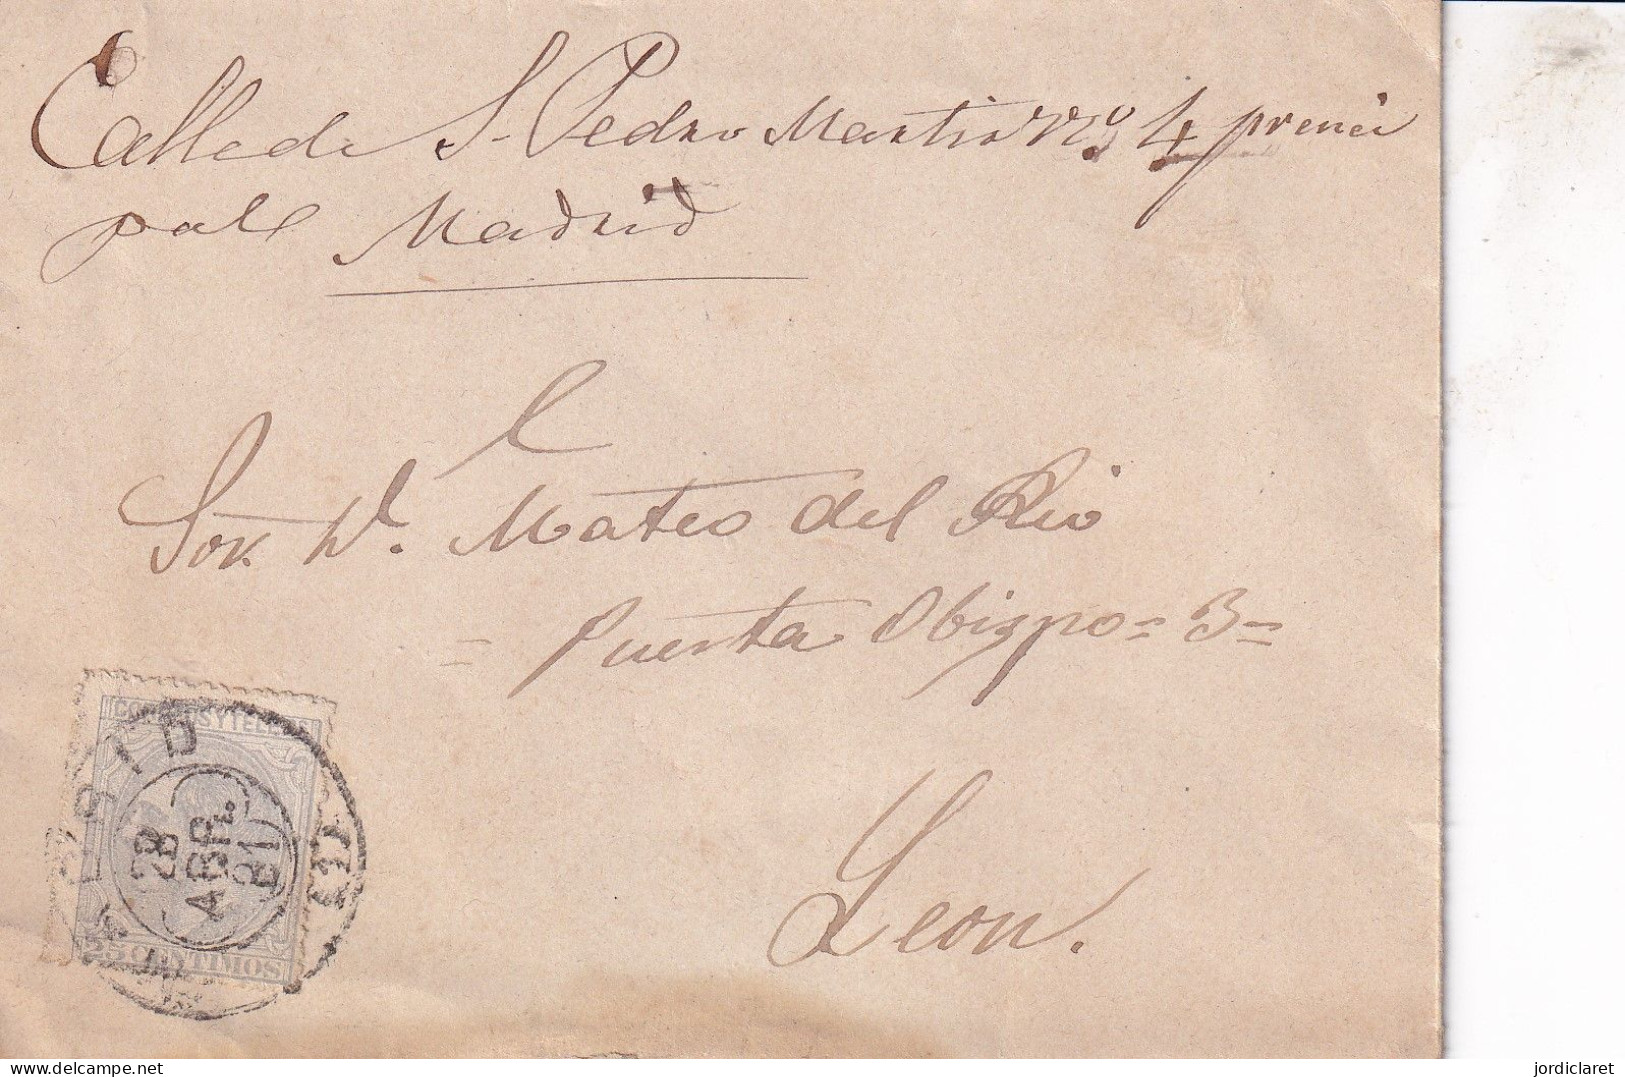 Calle de S. Pedro Martir nº 4 prenci
pal Madrid
Sor. D. Mateo del Rio
= Puerta Obizpo = 3 =
Leon.
CORREOS Y TELEGS
MADRID
28
ABR.
81
25 CENTIMOS
delcampe.net
jordiclaret